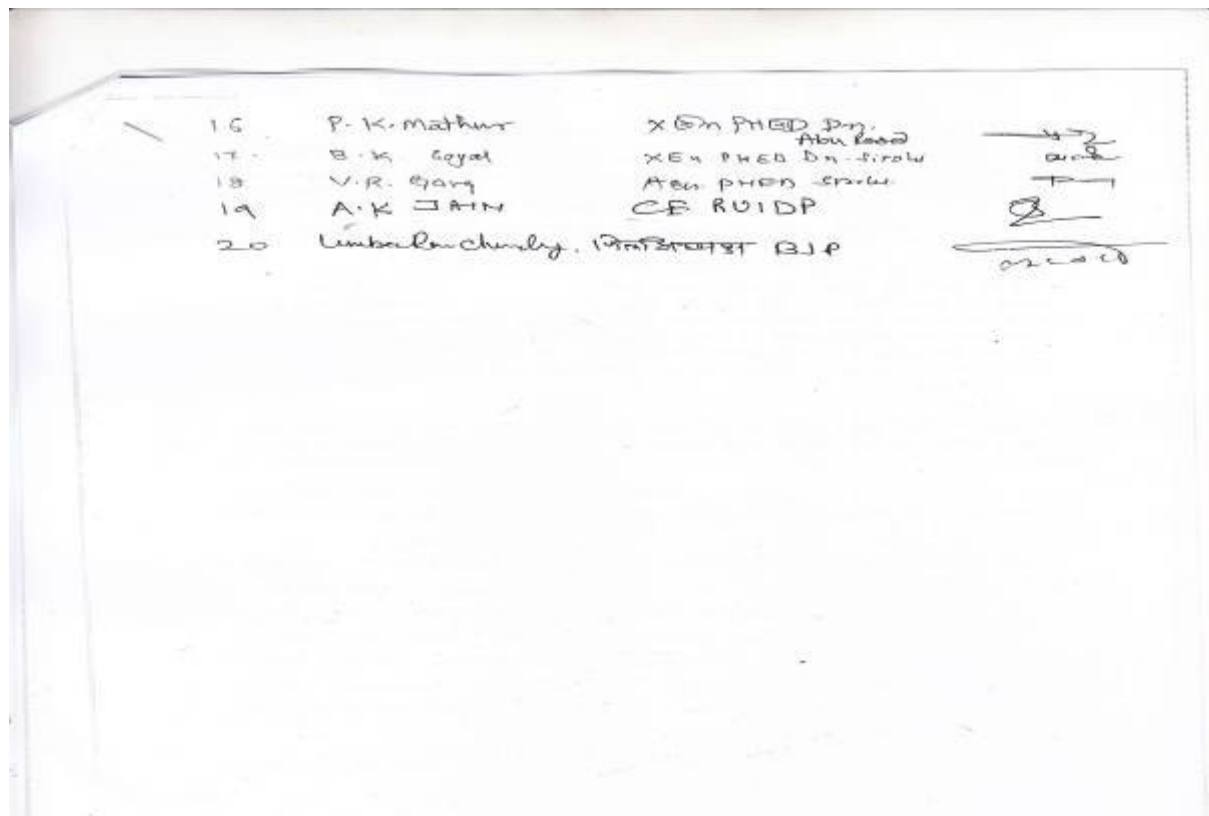 16 P. K. Mathur XEn PHED Dn.
Abu Road
17. B. K. Goyal XEn PHED Dn. Sirohi
18 V. R. Garg AEn PHED Sirohi
19 A. K JAIN CE RUIDP
20 BJP